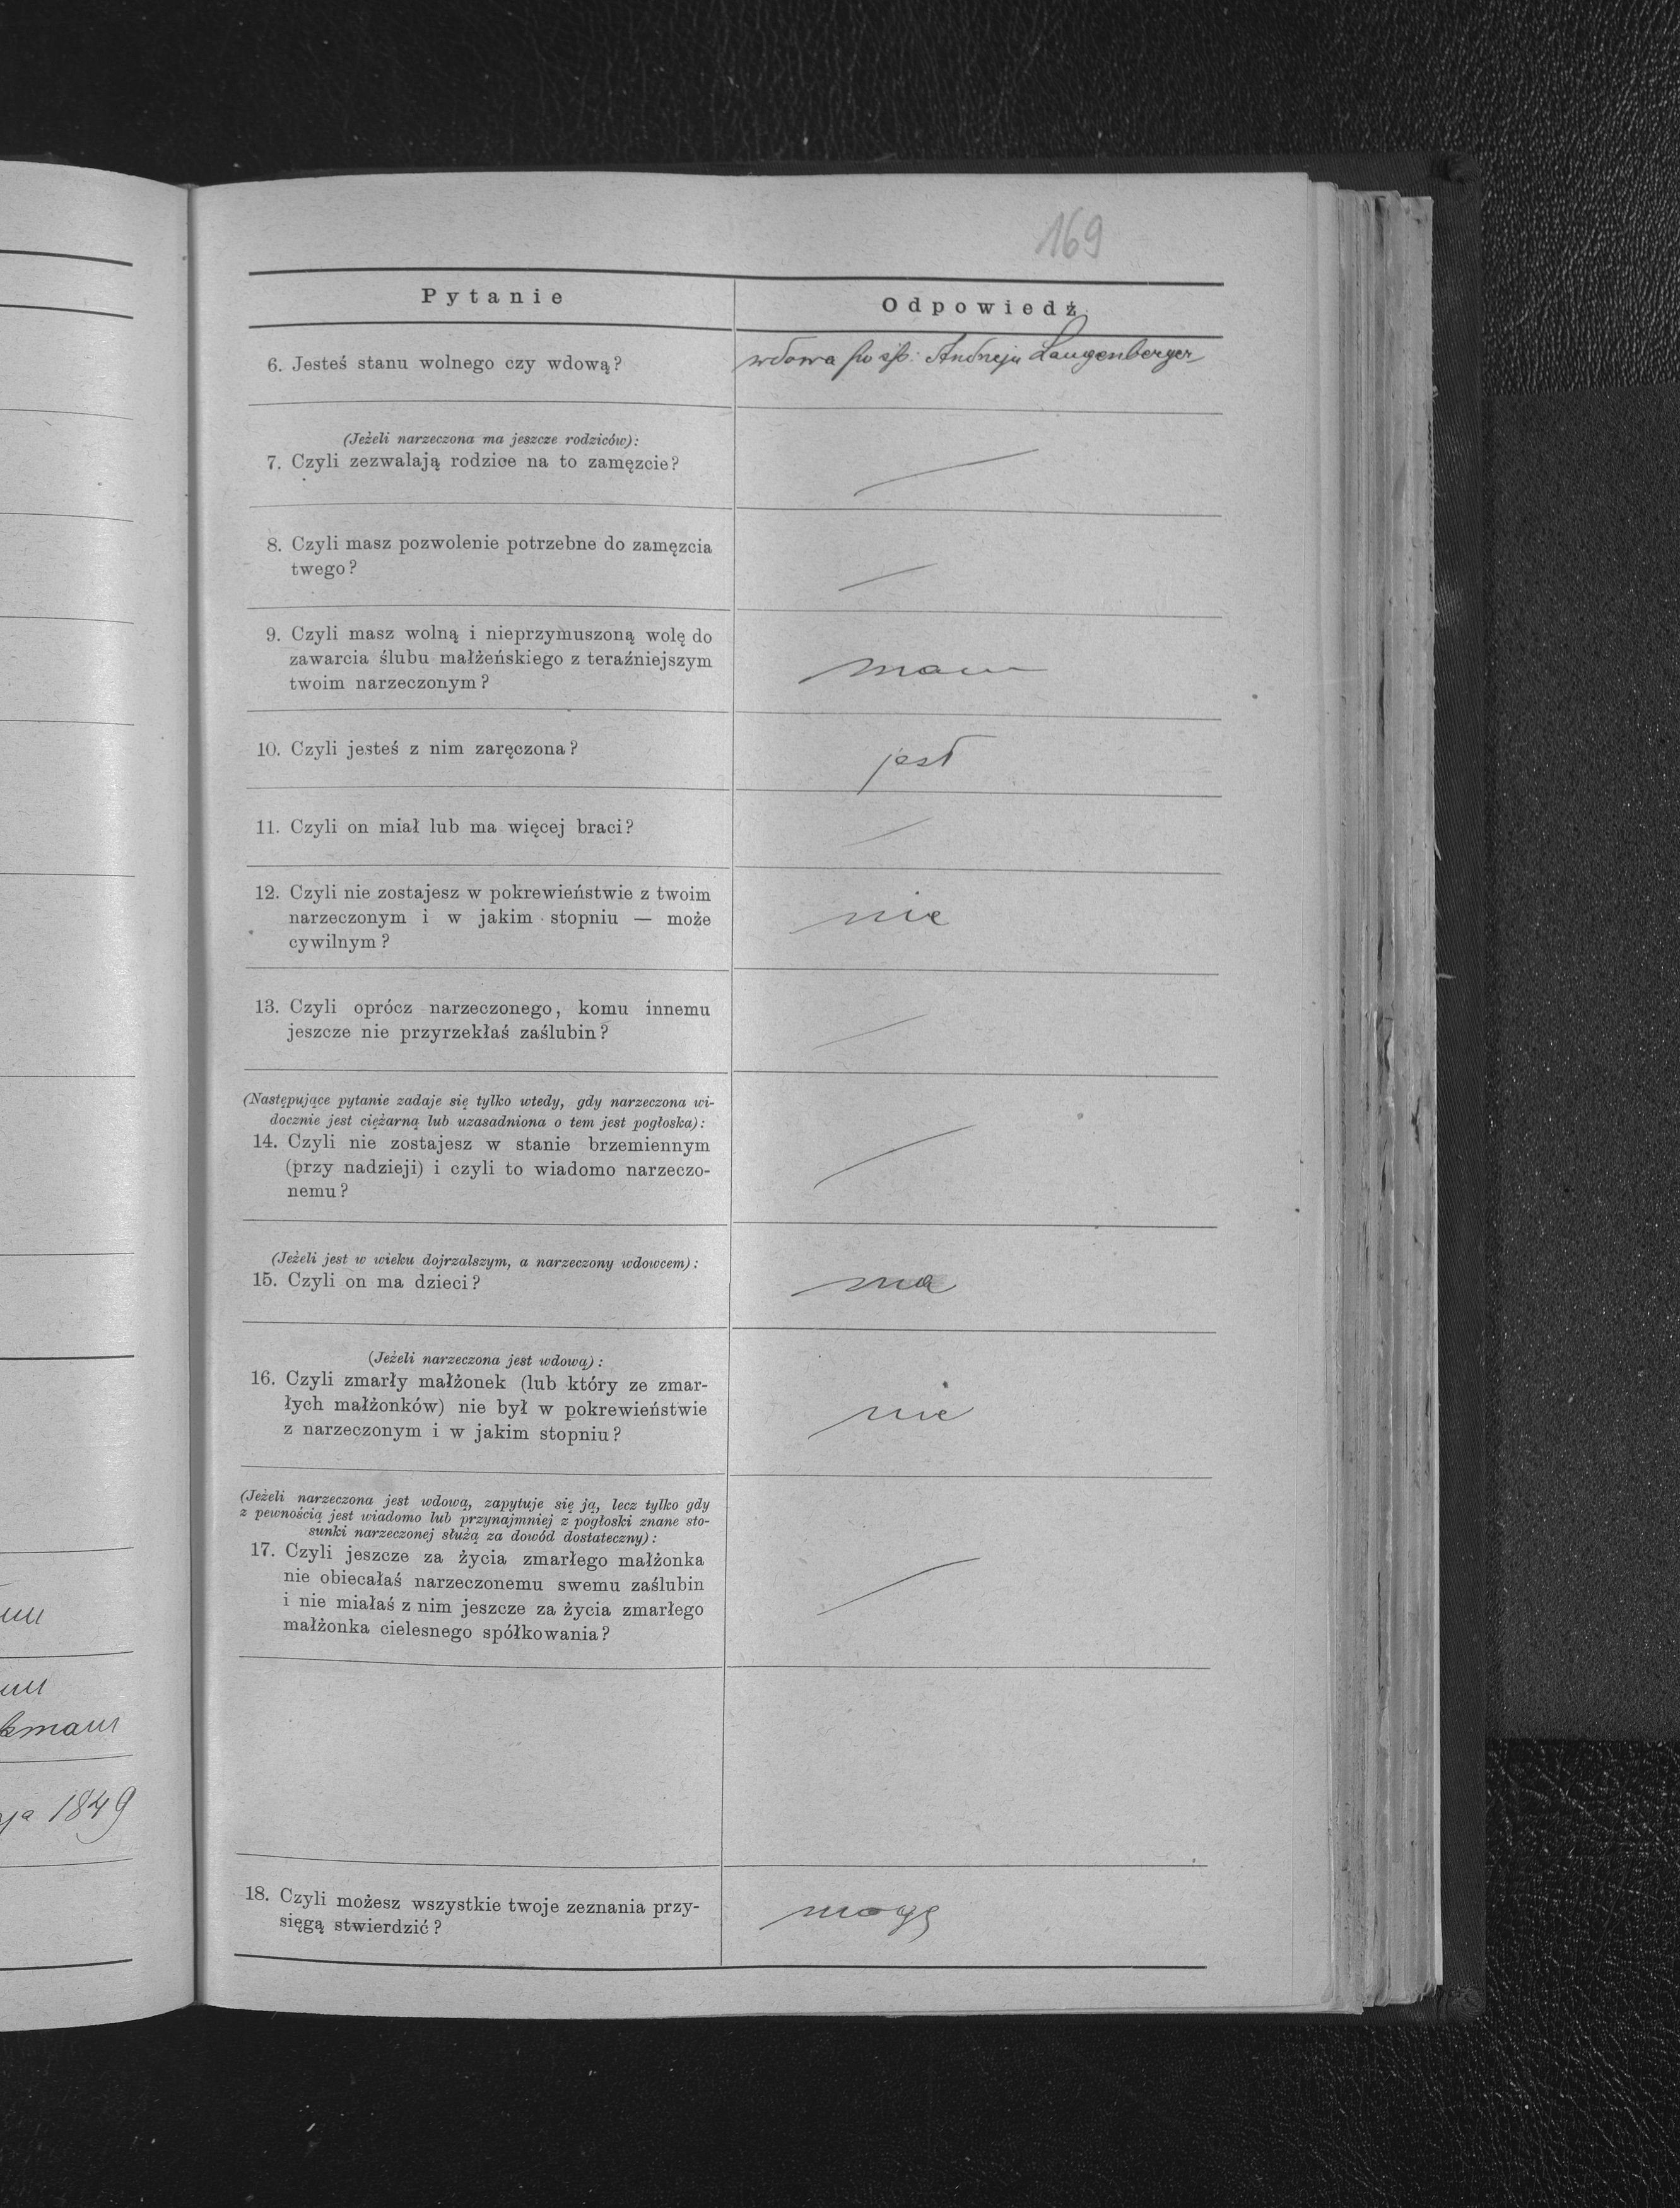 169
Pytanie
Odpowiedź
6. Jesteś stanu wolnego czy wdową?
wdowa po śp. Andrzeju Langenberger
(Jeżeli narzeczona ma jeszcze rodziców):
7. Czyli zezwalają rodzice na to zamęzcie?
8. Czyli masz pozwolenie potrzebne do zamęzcia
twego?
9. Czyli masz wolną i nieprzymuszoną wolę do
zawarcia ślubu małżeńskiego z teraźniejszym
twoim narzeczonym?
mam
10. Czyli jesteś z nim zaręczona?
jest
11. Czyli on miał lub ma więcej braci?
12. Czyli nie zostajesz w pokrewieństwie z twoim
narzeczonym i w jakim stopniu — może
cywilnym?
nie
13. Czyli oprócz narzeczonego, komu innemu
jeszcze nie przyrzekłaś zaślubin?
(Następujące pytanie zadaje się tylko wtedy, gdy narzeczona wi-
docznie jest ciężarną lub uzasadniona o tem jest pogłoska):
14. Czyli nie zostajesz w stanie brzemiennym
(przy nadzieji) i czyli to wiadomo narzeczo-
nemu?
(Jeżeli jest w wieku dojrzalszym, a narzeczony wdowcem):
15. Czyli on ma dzieci?
ma
(Jeżeli narzeczona jest wdową):
16. Czyli zmarły małżonek (lub który ze zmar-
łych małżonków) nie był w pokrewieństwie
z narzeczonym i w jakim stopniu?
nie
(Jeżeli narzeczona jest wdową, zapytuje się ją, lecz tylko gdy
z pewnością jest wiadomo lub przynajmniej z pogłoski znane sto-
sunki narzeczonej służą za dowód dostateczny):
17. Czyli jeszcze za życia zmarłego małżonka
nie obiecałaś narzeczonemu swemu zaślubin
i nie miałaś z nim jeszcze za życia zmarłego
małżonka cielesnego spółkowania?
1849
18. Czyli możesz wszystkie twoje zeznania przy-
sięgą stwierdzić?
mogę